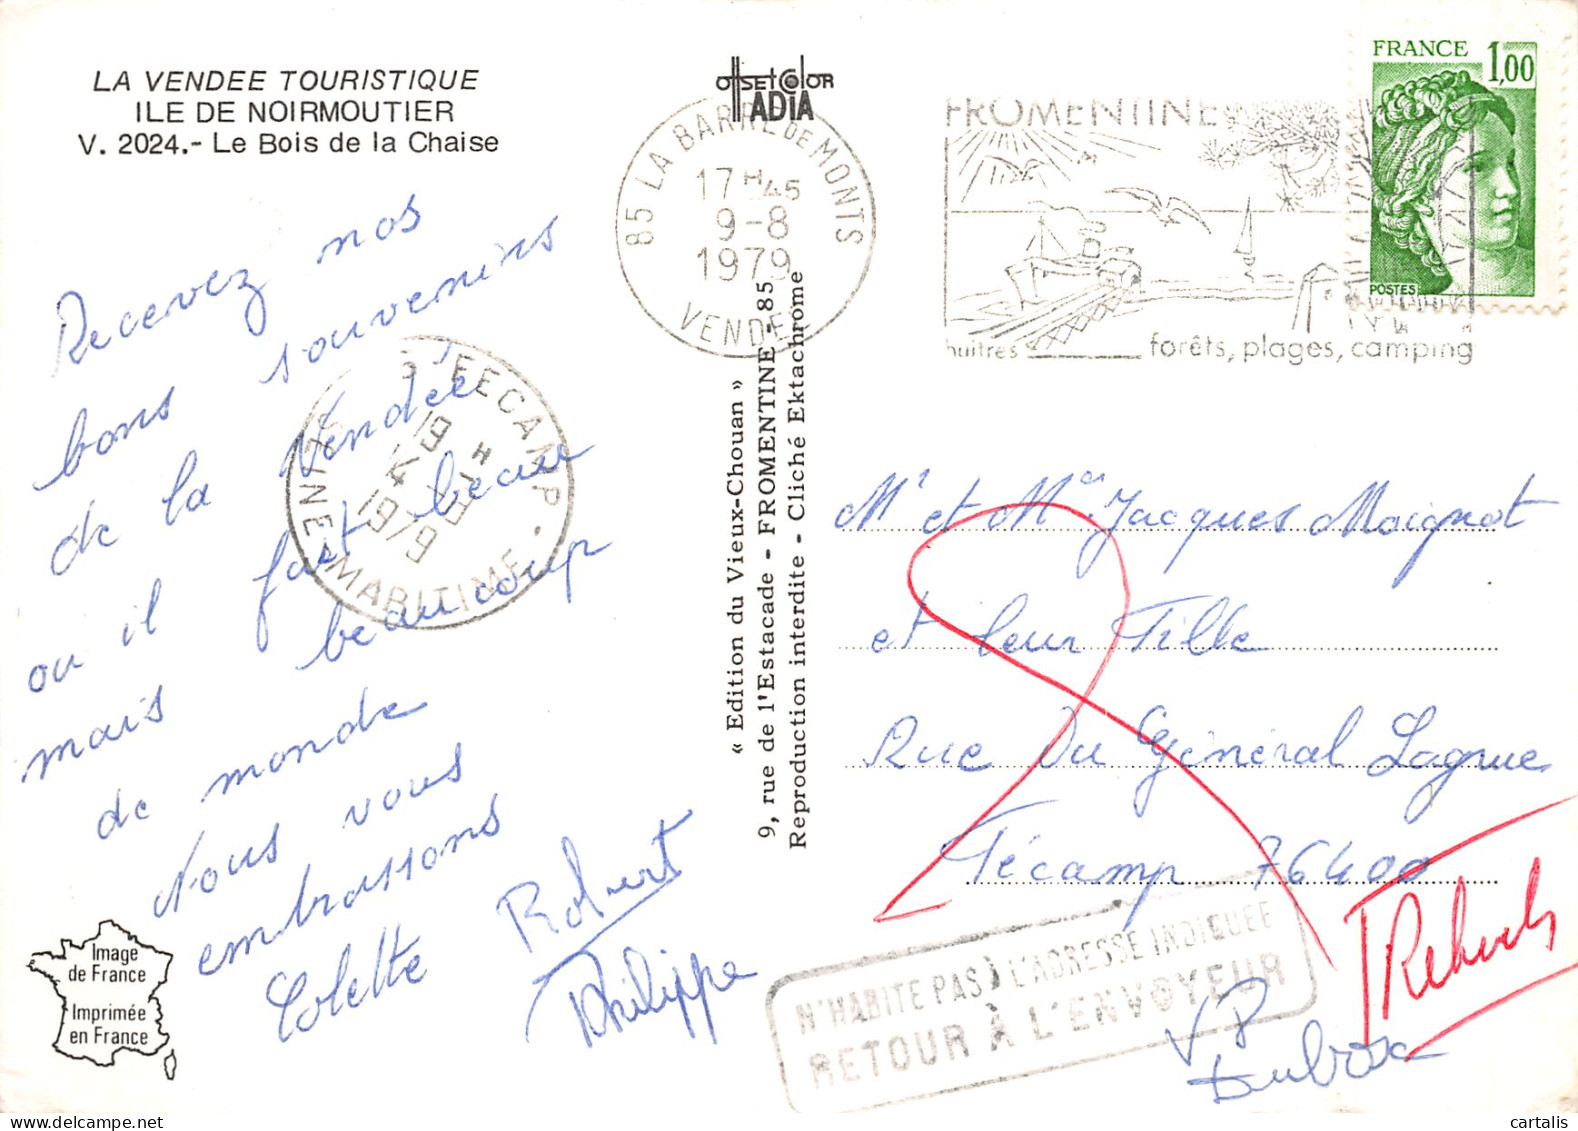 LA VENDEE TOURISTIQUE
ILE DE NOIRMOUTIER
V. 2024.- Le Bois de la Chaise
Recevez nos
bons souvenirs
de la Vendée
ou il fait beau
mais beaucoup
de monde
Nous vous
embrassons
Colette Robert
Philippe
Image
de France
Imprimée
en France
OffsetColor
ADIA
85 LA BARRE DE MONTS
17H45
9-8
1979
VENDEE
FECAMP
19H
14-8
1979
SEINE MARITIME
« Edition du Vieux-Chouan »
9, rue de l'Estacade - FROMENTINE - 85
Reproduction interdite - Cliché Ektachrome
FROMENTINE
huîtres forêts, plages, camping
FRANCE 1,00
POSTES
Mr et Mme Jacques Moignot
et leur Fille
Rue Du Général Lagrue
Fécamp 76400
N'HABITE PAS À L'ADRESSE INDIQUÉE
RETOUR À L'ENVOYEUR
Rebuts
cartalis